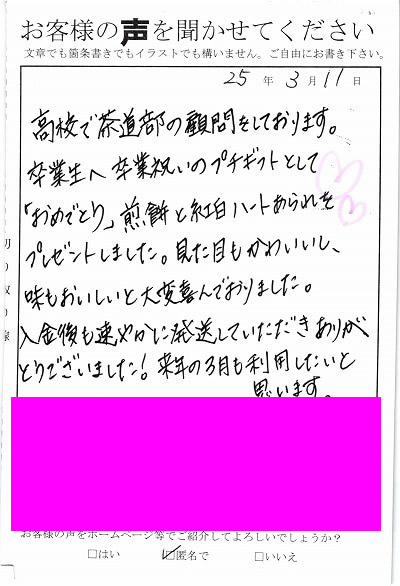 お客様の声を聞かせてください
文章でも箇条書きでもイラストでも構いません。ご自由にお書き下さい。
25 年 3 月 11 日
高校で茶道部の顧問をしております。
卒業生へ卒業祝いのプチギフトとして
「おめでとう」煎餅と紅白ハートあられを
プレゼントしました。見た目もかわいいし、
味もおいしいと大変喜んでおりました。
入金後も速やかに発送していただきありが
とうございました！来年の3月も利用したいと
思います。
お客様の声をホームページ等でご紹介してよろしいでしょうか？
□はい ☑匿名で □いいえ
切り取り線